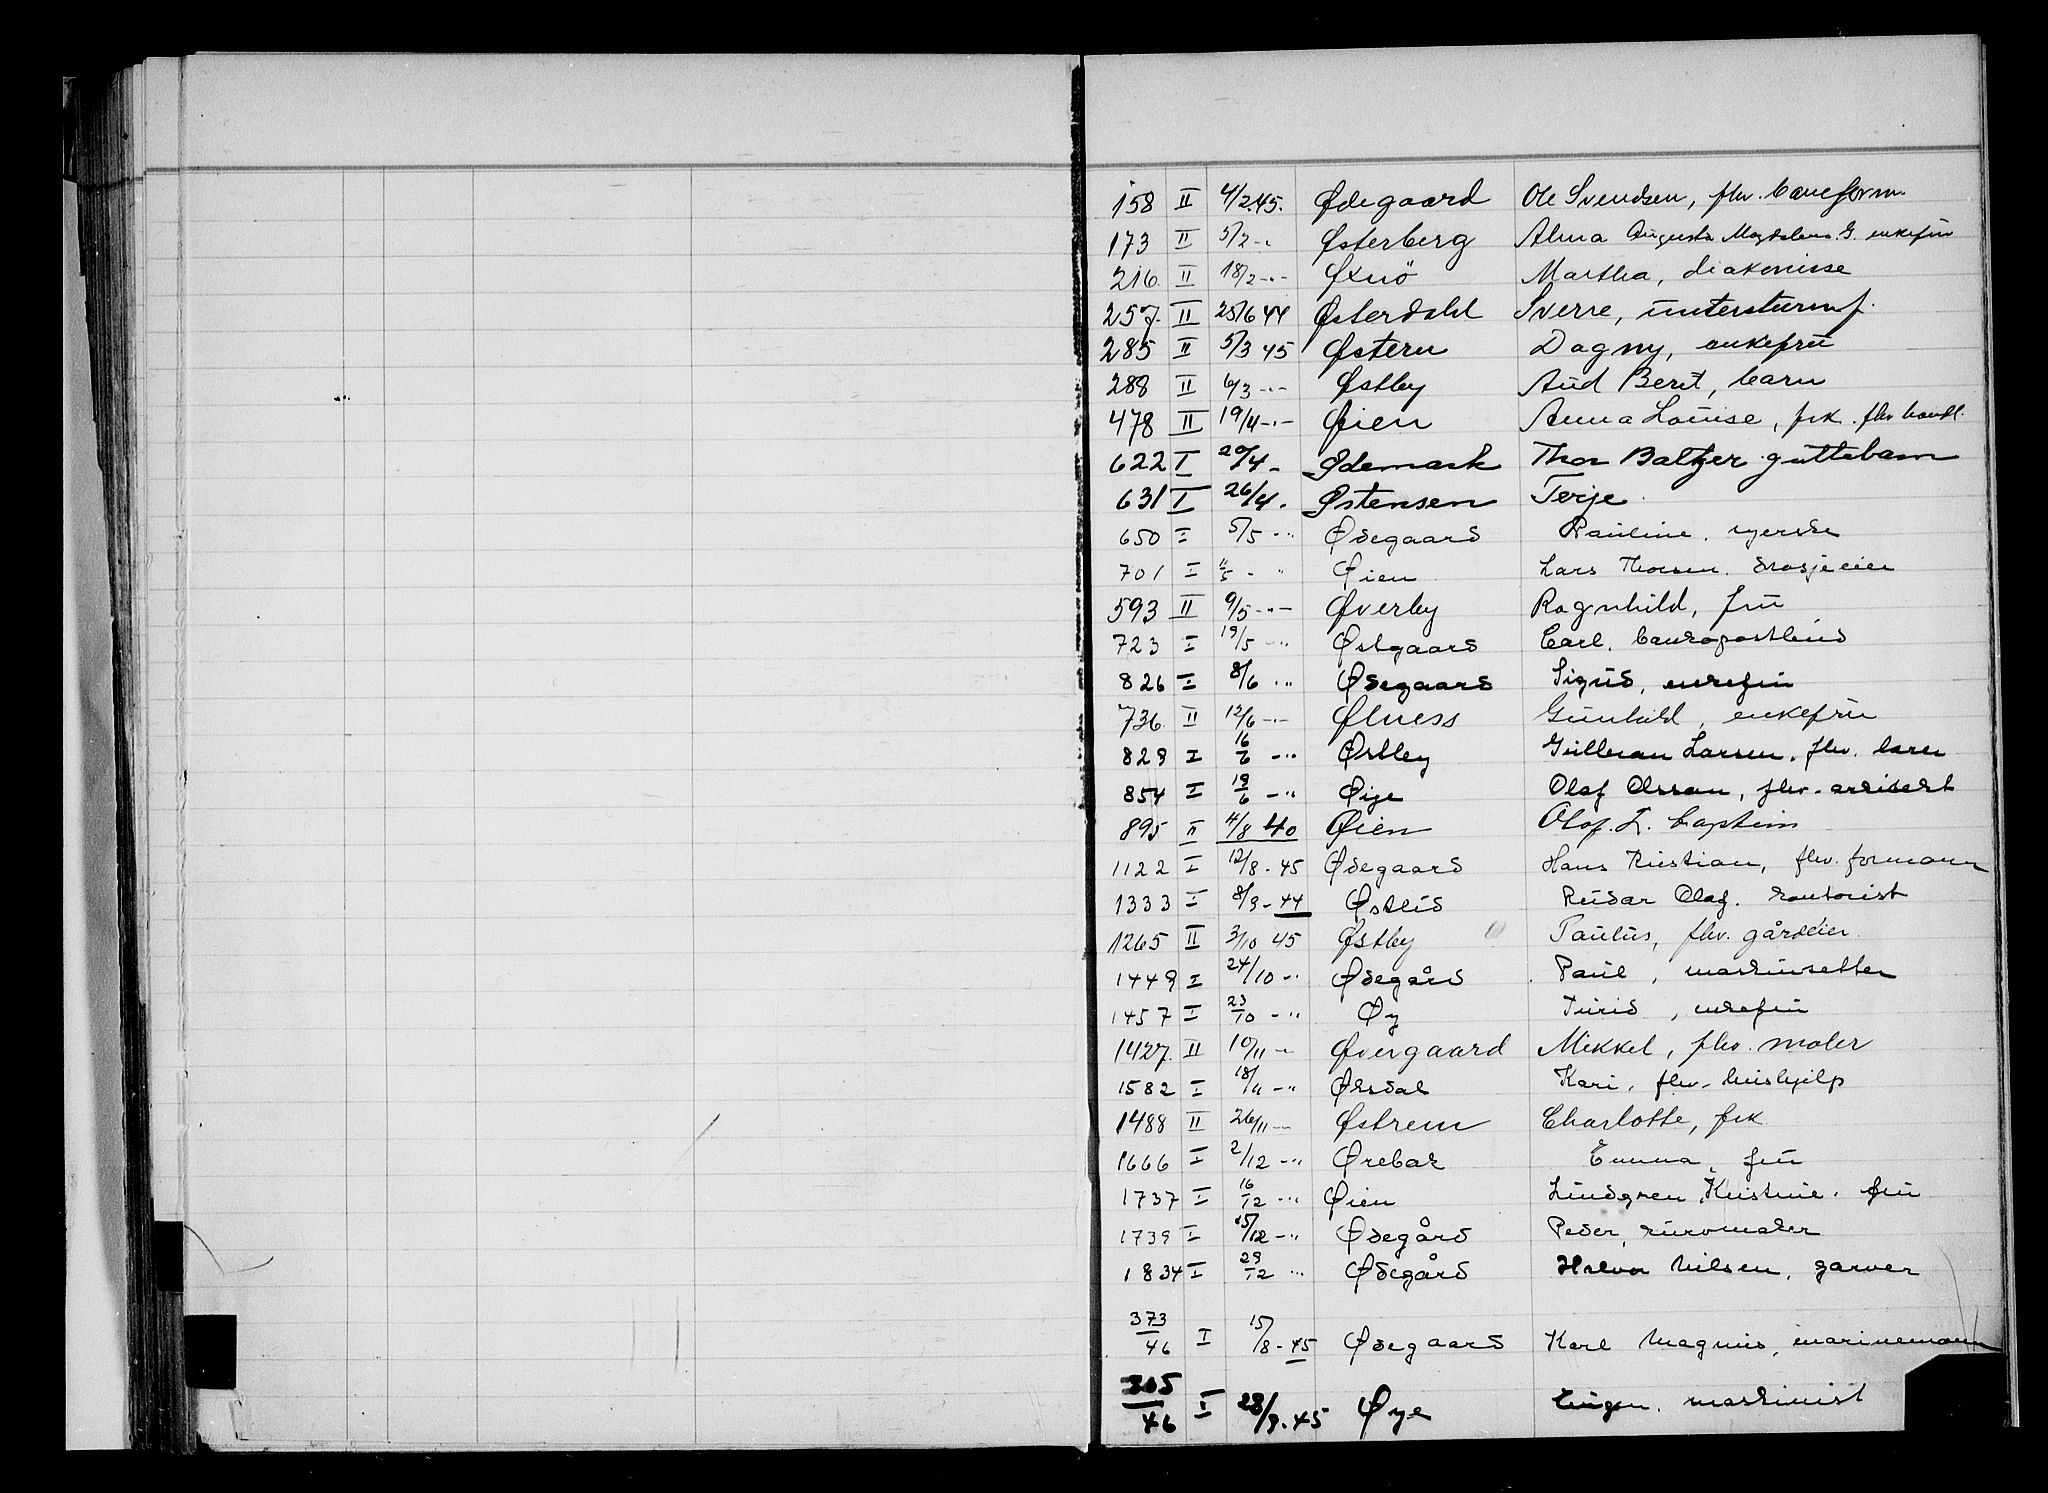 158 II 4/2.45. Ødegaard Ole Svendsen, fhv. baneform.
173 II 5/2 -.- Østerberg Alma Augusta Magdalena G. enkefru
216. II 18/2 -..- Øxnö Martha, diakonisse
257. II 25/6 44 Østerdahl Sverre, untersturmf.
285 II 5/3 45 Østern Dagny, enkefru
288 II 6/3 -..- Østby Aud Berit, barn
478 II 19/4 -.- Øien Anna Louise, frk. fhv handl.
622 I 20/4 - Ødemark Thor Baltzer guttebarn
631 I 26/4. Østensen Terje.
650 I 5/5 -"- Ødegaard Pauline, syerske
701 I 11/5 - " Øien Lars Thorsen. drosjeeier
593 II 9/5 -..- Øverby Ragnhild, fru
723 I 19/5 -.." Østgaard Carl, bankopostbud
826 I 8/6 .." Ødegaard Sigrid, enkefru
736. II 12/6 -..- Ølness Gunhild, enkefru
829 I 16/6 -.." Østby Gullman Larsen, fhv. baker
854 I 19/6 -" Øije Olaf Olssøn, fhv. arkitekt
895 II 4/8 40 Øien Olaf. T. kaptein
1122 I 12/8 - 45 Ødegaard Hans Kristian, fhv. formann
1333 I 8/9 - 44 Østlid Reidar Olaf. kontorist
1265 II 3/10 45 Østby Paulus, fhv. gårdeier.
1449 I 24/10 -.. Ødegård Paul, maskinsetter
1457 I 23/10 -" Øy Turid, enkefru
1427. II 10/11 -- Øvergaard Mikkel, fhv. maler
1582 I 18/11 -" Øksdal Kari, fhv. hushjelp
1488 II 26/11 -- Østrem Charlotte, frk
1666 I 2/12 -" Ørebak Emma, fru
1737 I 16/12 -.." Øien Lindgren, Kristine. fru
1739 I 15/12 -" Ødegård Peder, kurvmaker
1834 I 29/12 .." Ødegård Halvor Nilsen, garver
373/46 I 15/8 - 45 Ødegaard Karl Magnus, marinemann
305/46 I 28/9. 45 Øye Eugen. maskinist